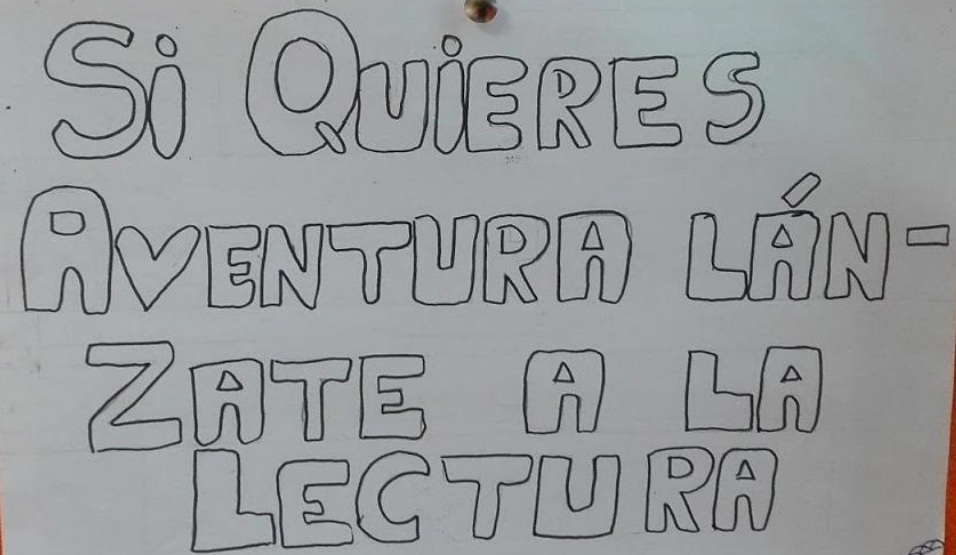 Si QUiERES
AVENTURA LÁN-
ZATE A LA
LECTURA